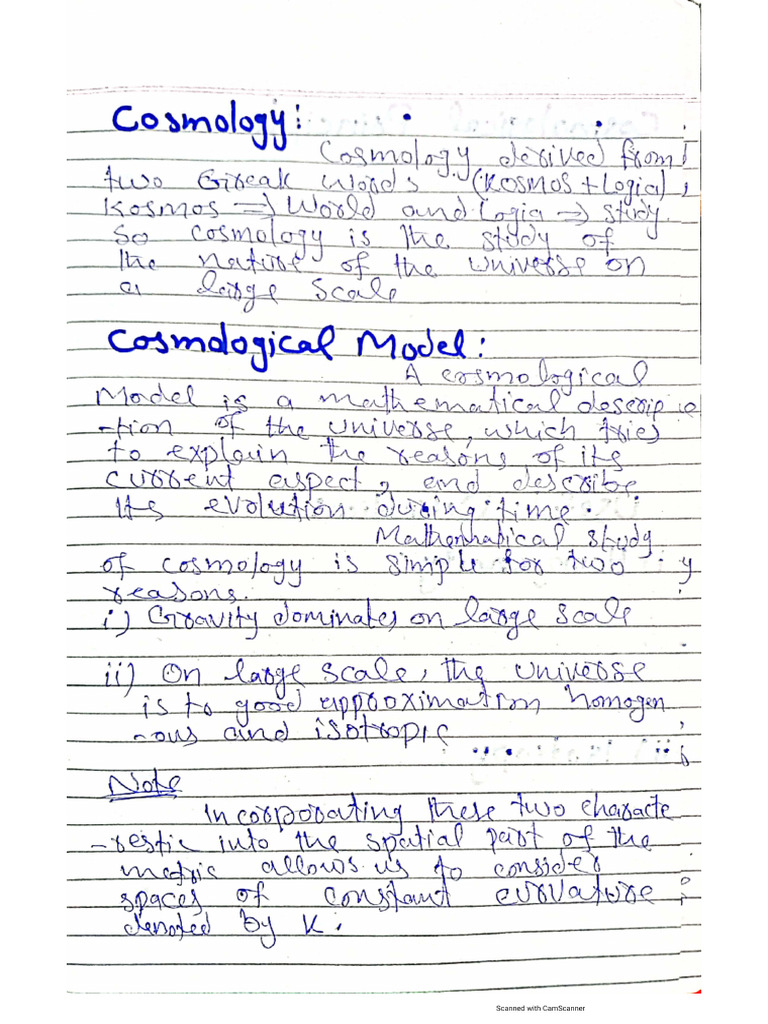 Cosmology:
Cosmology derived from
two Greak words (Kosmos + Logia),
Kosmos => World and Logia => study.
So cosmology is the study of
the nature of the universe on
a large scale
Cosmological Model:
A cosmological
Model is a mathematical descrip
-tion of the universe, which tries
to explain the reasons of its
current aspect, and describe
its evolution during time.
Mathematical study
of cosmology is simple for two
reasons.
i) Gravity dominates on large scale
ii) On large scale, the universe
is to good approximation homogen
-ous and isotropic
Note
Incorporating these two characte
-restic into the spatial part of the
metric allows us to consider
spaces of constant curvature
denoted by K.
Scanned with CamScanner